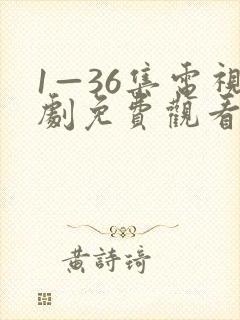 1—36集電視
劇免費觀看
黃詩琦